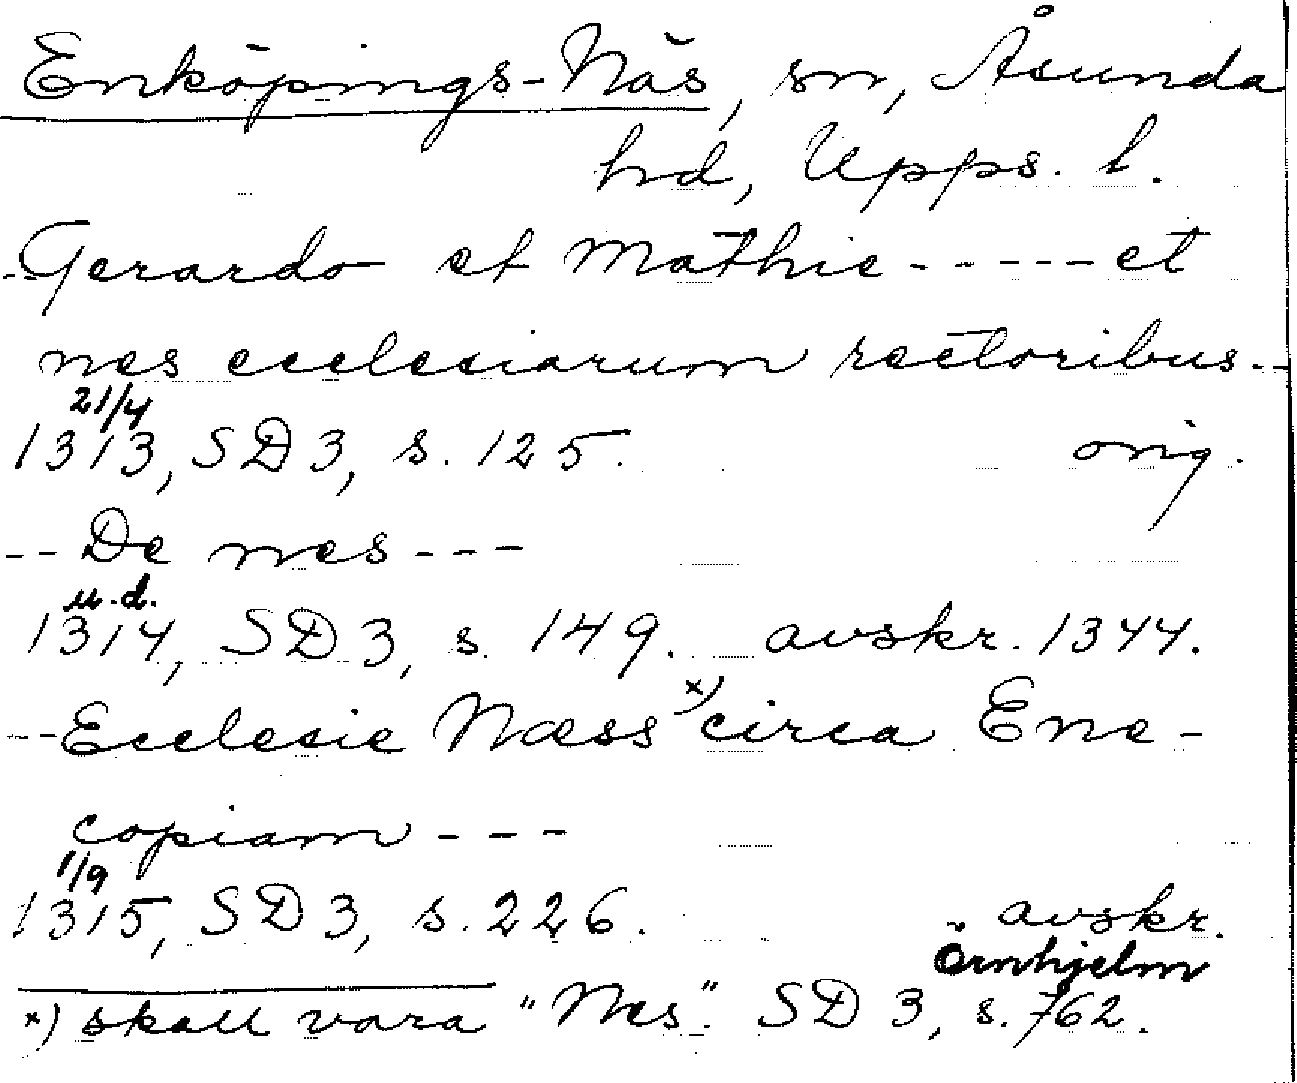 Enköpings-Näs, sn, Åsunda
hd, Upps. l.
-Gerardo et Mathie-----et
nes ecclesiarum rectoribus--
21/4
1313, SD 3, s. 125. orig.
--De nes---
u.d.
1314, SD 3, s. 149. avskr. 1344.
--Ecclesie Næss x) circa Ene-
copiam---
1/9
1315, SD 3, s. 226. avskr.
Örnhjelm
x) skall vara "Nes". SD 3, s. 762.